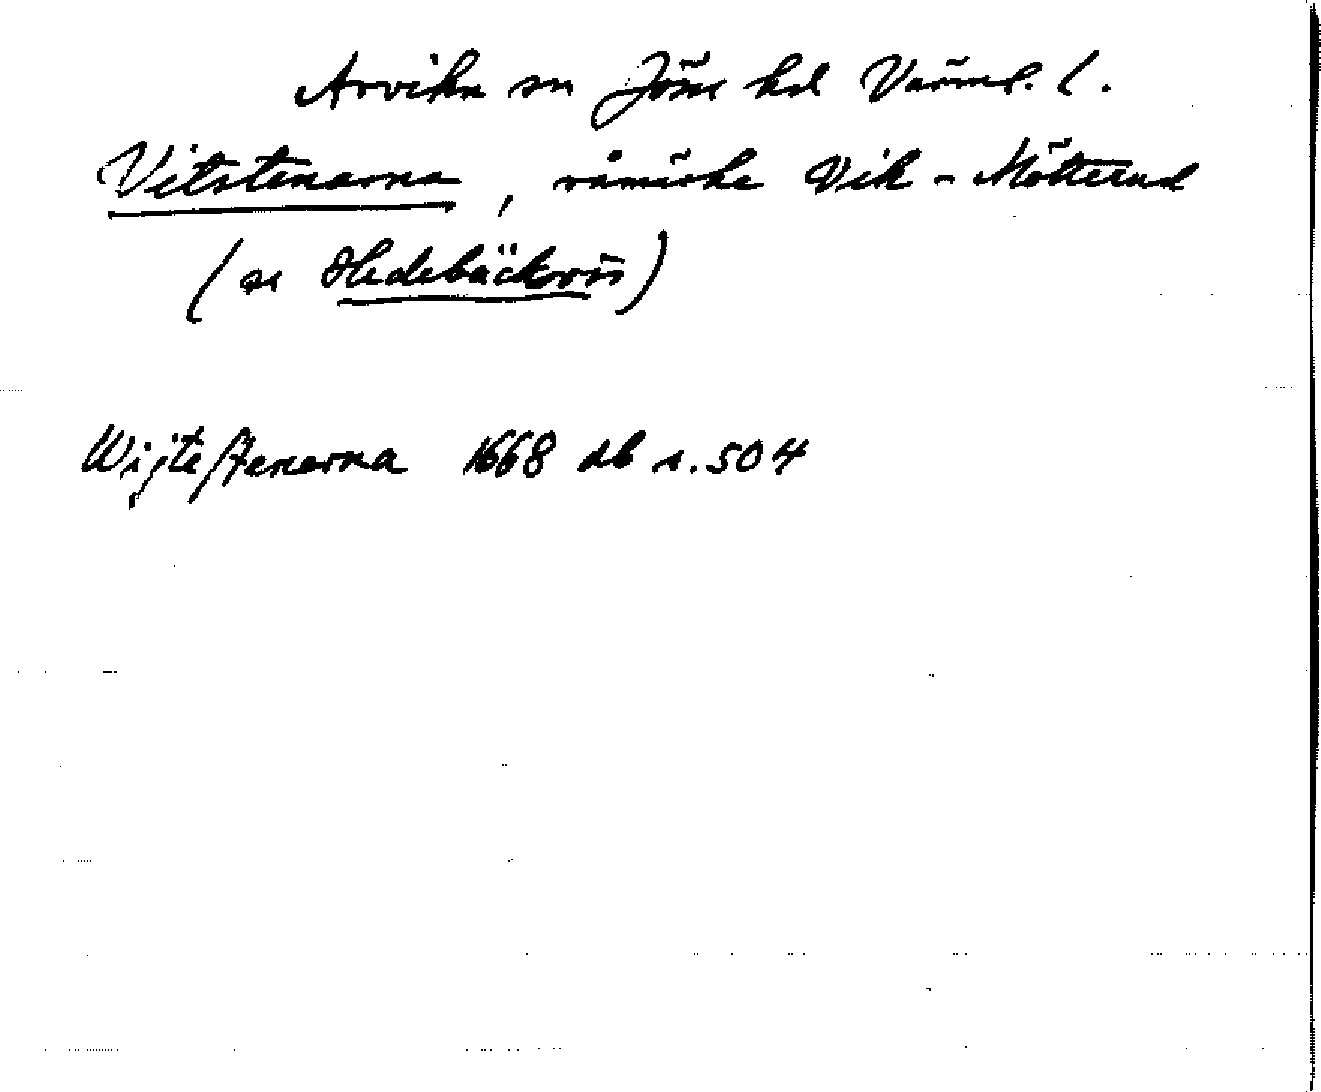 Arvika sn Jösse hd Värml. l.
Vitstenarna, råmärke Vik - Mötterud
(se Hedebäcksrös)
Wijtestenarna 1668 db s. 504